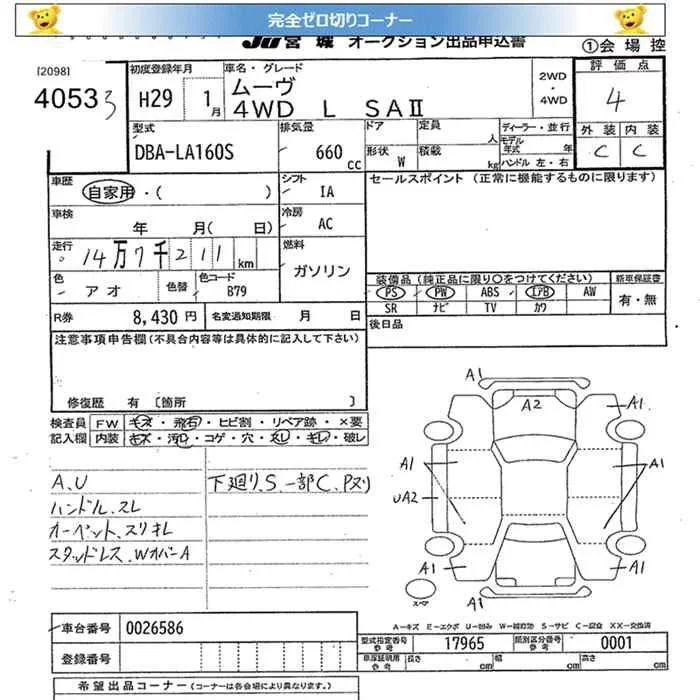 完全ゼロ切りコーナー
JU宮城 オークション出品申込書 ①会場控
[2098] 初度登録年月 車名・グレード 2WD・4WD 評価点
40533 H29 1月 ムーヴ 4
4WD L SAⅡ
型式 排気量 ドア 定員 人 ディーラー・並行 外装 内装
DBA-LA160S 660cc 形状 W 積載 kg モデル年式 年 C C
ハンドル 左・右
車歴 自家用・( ) シフト IA セールスポイント (正常に機能するものに限ります)
車検 年 月( 日) 冷房 AC
走行 14万7千211km 燃料 ガソリン
色 アオ 色替 色コード B79 装備品 (純正品に限り○をつけてください) 新車保証書
PS PW ABS エアB AW 有・無
SR ナビ TV カワ
R券 8,430円 名変通知期限 月 日 後日品
注意事項申告欄(不具合内容等は具体的に記入して下さい)
修復歴 有 〔箇所 〕
検査員 FW キズ・飛石・ヒビ割・リペア跡・×要
記入欄 内装 キズ・汚レ・コゲ・穴・スレ・キレ・破レ
A.U 下廻り.S 一部C.Pヌリ
ハンドル.スレ
スタッドレス.WオバーA
A1
A2
A1 A1
A1 A1
UA2
A1 A1
スペア A1
A-キズ E-エクボ U-凹み W-補修跡 S-サビ C-腐食 XX-交換済
車台番号 0026586 型式指定番号 参考 17965 類別区分番号 参考 0001
登録番号 車庫証明用 参考 長さ cm 幅 cm 高さ cm
希望出品コーナー(コーナーは各会場により異なります。)